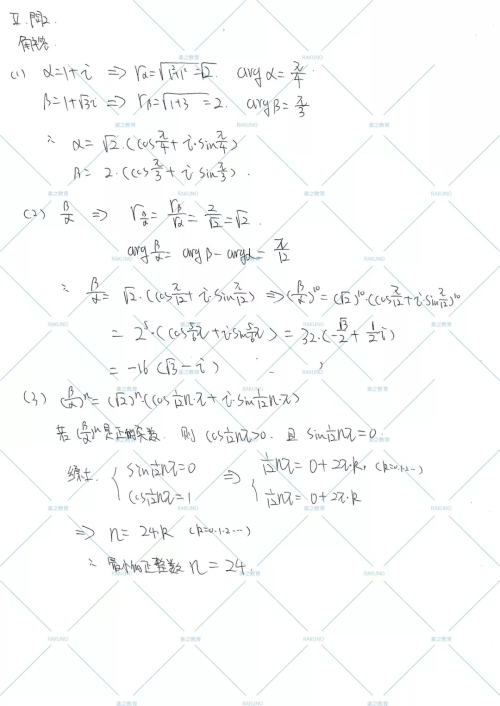 II. 問2
解答:
(1) α=1+i ⇒ rα=√(1²+1²)=√2. argα=π/4.
β=1+√3i ⇒ rβ=√(1+3)=2. argβ=π/3
∴ α=√2·(cosπ/4+i·sinπ/4)
β=2·(cosπ/3+i sinπ/3).
(2) β/α ⇒ rβ/α=rβ/rα=2/√2=√2.
argβ/α=argβ-argα=π/12
∴ β/α=√2·(cosπ/12+i·sinπ/12) ⇒(β/α)^10=(√2)^10·(cosπ/12+i·sinπ/12)^10
=2^5·(cos5/6π+i·sin5/6π)=32·(-√3/2+1/2i)
=-16(√3-i)
(3) (β/α)^n=(√2)^n·(cos1/12n·π+i·sin1/12n·π)
若(β/α)^n是正的实数. 则cos1/12nπ>0. 且sin1/12nπ=0.
综上. { sin1/12nπ=0 ⇒ { 1/12nπ=0+2π·k. (k=0.1.2…)
cos1/12nπ=1 1/12nπ=0+2π·k
⇒ n=24·k (k=0.1.2…)
∴ 最小的正整数n=24.
楽之教育
RAKUNO